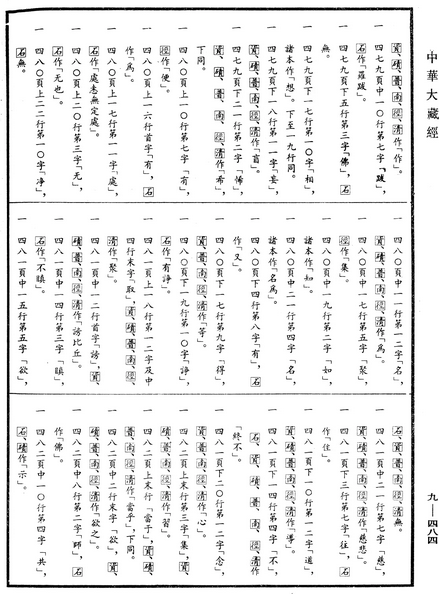 中華大藏經
資、磧、普、南、徑、清作「作」。
一 四七九頁中一〇行第七字「跋」，
石作「羅跋」。
一 四七九頁下五行第三字「佛」，石
無。
一 四七九頁下一七行第一〇字「相」，
諸本作「想」。下至一九行同。
一 四七九頁下一八行第一一字「妄」，
資、磧、普、南、徑、清作「盲」。
一 四七九頁下二一行第二字「悕」，
資、磧、普、南、徑、清作「希」，
下同。
一 四八〇頁上一〇行第七字「有」，
徑作「便」。
一 四八〇頁上一六行首字「有」，石
作「爲」。
一 四八〇頁上一七行第一一字「處」，
石作「處悉無定處」。
一 四八〇頁上二〇行第三字「无」，
石作「无也」。
一 四八〇頁上二二行第一〇字「净」，
石無。
一 四八〇頁中一一行第一二字「名」，
資、磧、普、南、徑、清作「爲」。
一 四八〇頁中一七行第五字「聚」，
徑作「集」。
一 四八〇頁中一九行第二字「如」，
諸本作「知」。
一 四八〇頁中二一行第四字「名」，
諸本作「名爲」。
一 四八〇頁下四行第八字「有」，石
作「又」。
一 四八〇頁下一七行第九字「得」，
資、磧、普、南、徑、清作「等」。
一 四八〇頁下一九行第一〇字「諍」，
石作「有諍」。
一 四八一頁上一八行第一二字及中
四行末字「取」，資、磧、普、南、徑、
清作「聚」。
一 四八一頁中一二行首字「謗」，資、
磧、普、南、徑、清作「謗比丘」。
一 四八一頁中一四行第三字「瞋」，
石作「不瞋」。
一 四八一頁中一五行第五字「欲」，
石、資、磧、普、南、徑、清無。
一 四八一頁中二一行第七字「慈」，
資、磧、普、南、徑、清作「慈悲」。
一 四八一頁下三行第七字「往」，石
作「住」。
一 四八一頁下一〇行第一二字「道」，
資、磧、普、南、徑、清作「導」。
一 四八一頁下一四行第四字「不」，
石、資、磧、普、南、徑、清作
「終不」。
一 四八一頁下二〇行第一二字「念」，
資、磧、普、南、徑、清作「心」。
一 四八二頁上末行第三字「集」，資、
磧、普、南、徑、清作「習」。
一 四八二頁上末行「當于」，資、磧、
普、南、徑、清作「當乎」，下同。
一 四八二頁中二行末字「欲」，資、
磧、普、南、徑、清作「欲之」。
一 四八二頁中八行第二字「師」，石
作「佛」。
一 四八二頁中一〇行第四字「共」，
石、磧作「示」。
九—四八四